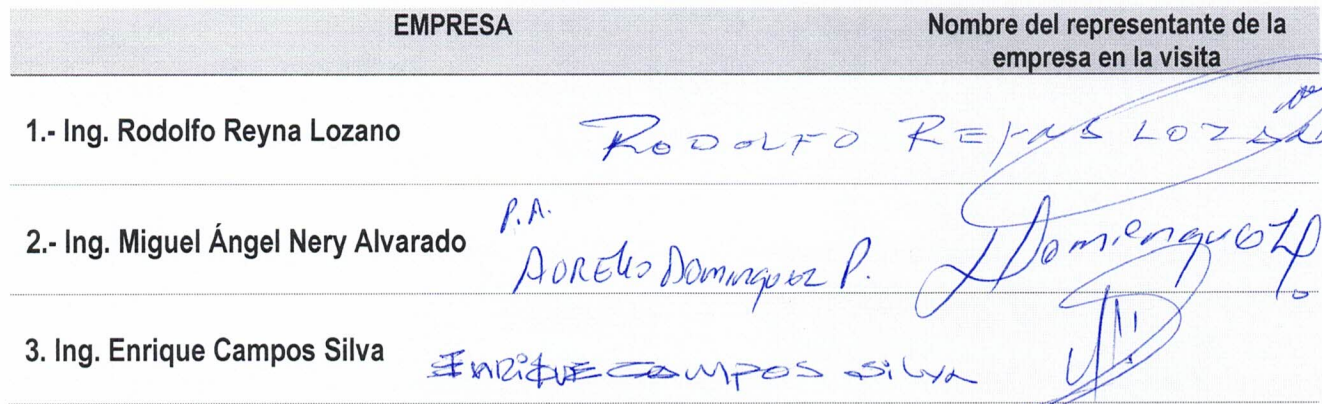 EMPRESA
Nombre del representante de la
empresa en la visita
1.- Ing. Rodolfo Reyna Lozano RODOLFO REYNA LOZANO
P.A.
2.- Ing. Miguel Ángel Nery Alvarado AURELIO DOMINGUEZ P. Dominguez P.
3. Ing. Enrique Campos Silva ENRIQUE CAMPOS SILVA